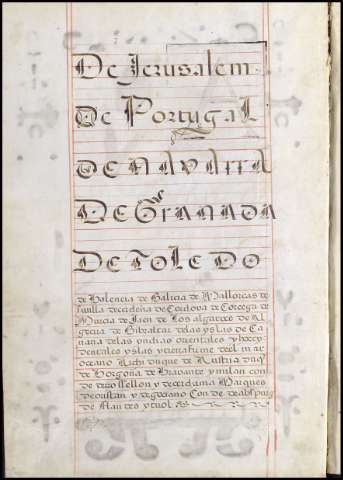 De Jerusalem
De Portugal
de Navarra
De Granada
De Toledo
de Valencia de Galicia de Mallorcas de
sevilla decerdeña de Cordova de Corcega de
Murcia de Jaen de Los algarves de Al
gecira de Gibraltar delas yslas de Ca
naria delas yndias orientales y hocci
dentales yslas y tierra firme del mar
oceano Archiduque de Austria duq
de borgoña de bravante y milan con
de de rosellon y decerdania Marques
de oristan y degociano Con de de abspurg
de flandes y tirol